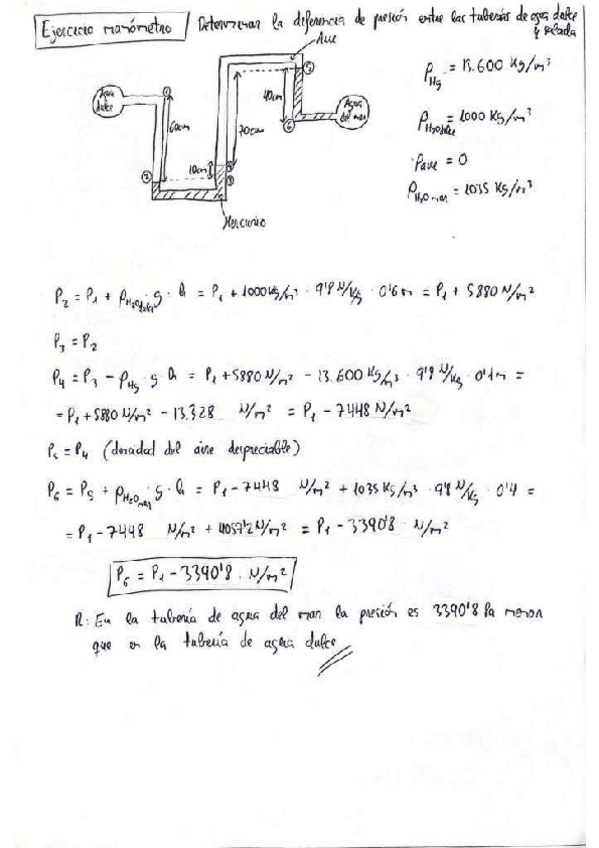 Ejercicio manómetro / Determinar la diferencia de presión entre las tuberías de agua dulce
y salada
Aire
Agua
dulce
1
60cm
2
10cm
4
3
70cm
40cm
5
6
Agua
del mar
Mercurio
ρHg = 13.600 Kg/m³
ρH2Odulce = 1000 Kg/m³
ρaire = 0
ρH2O mar = 1035 Kg/m³
P2 = P1 + ρH2Odulce · g · h = P1 + 1000 Kg/m³ · 9'8 N/Kg · 0'6 m = P1 + 5880 N/m²
P3 = P2
P4 = P3 - ρHg · g · h = P1 + 5880 N/m² - 13.600 Kg/m³ · 9'8 N/Kg · 0'1m =
= P1 + 5880 N/m² - 13.328 N/m² = P1 - 7448 N/m²
P5 = P4 (densidad del aire despreciable)
P6 = P5 + ρH2Omar · g · h = P1 - 7448 N/m² + 1035 Kg/m³ · 9'8 N/Kg · 0'4 =
= P1 - 7448 N/m² + 4057'2 N/m² = P1 - 3390'8 N/m²
P6 = P1 - 3390'8 · N/m²
R: En la tubería de agua del mar la presión es 3390'8 Pa menor
que en la tubería de agua dulce